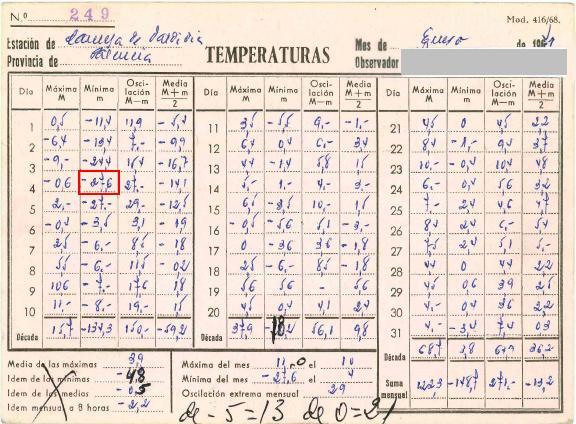 N.o 249
Mod. 416/68.
Estación de
Provincia de
TEMPERATURAS
Mes de Enero de 19
Observador
Día Máxima M Mínima m Oscilación M—m Media M+m 2
Día Máxima M Mínima m Oscilación M—m Media M+m 2
Día Máxima M Mínima m Oscilación M—m Media M+m 2
1 0,5 -11,4 11,9 -5,4
2 -6,4 -13,4 7,- -9,9
3 -9,- -24,4 15,4 -16,7
4 -0,6 -27,6 27,- -14,1
5 2,- -27,- 29,- -12,5
6 -0,4 -3,5 3,1 -1,9
7 2,5 -6,- 8,5 -1,8
8 5,5 -6,- 11,5 -0,2
9 10,6 -7,- 17,6 1,8
10 11,- -8,- 19,- 1,5
Década 15,7 -134,3 150,- -59,2
11 3,5 -5,5 9,- -1,-
12 6,4 0,4 6,- 3,4
13 4,4 -1,4 5,8 1,5
14 5,- -1,- 4,- 3,-
15 6,5 -3,5 10,- 1,5
16 -0,5 -5,6 5,1 -3,-
17 0 -3,6 3,6 -1,8
18 2,5 -6,- 8,5 -1,8
19 5,6 - 5,6 -
20 4,5 0,4 4,1 2,4
Década 37,9 56,1 9,8
21 4,5 0 4,5 2,2
22 8,4 -1,- 9,4 3,7
23 10,- -0,4 10,4 4,8
24 6,- 0,4 5,6 3,2
25 7,- 2,4 4,6 4,7
26 8,4 2,4 6,- 5,4
27 7,5 2,4 5,1 5,-
28 4,4 0 4,4 2,2
29 4,5 0,6 3,9 2,5
30 4,- 0,4 3,6 2,2
31 4,- -3,4 7,4 0,3
Década 68,7 3,8 64,9 36,2
Suma mensual 122,3 -148,7 271,- -13,2
Media de las máximas 3,9
Idem de las mínimas -4,8
Idem de las medias -0,5
Idem mensual a 8 horas -2,2
Máxima del mes 11,0 el 10
Mínima del mes -27,6 el 4
Oscilación extrema mensual 29
de -5=13 de 0=21